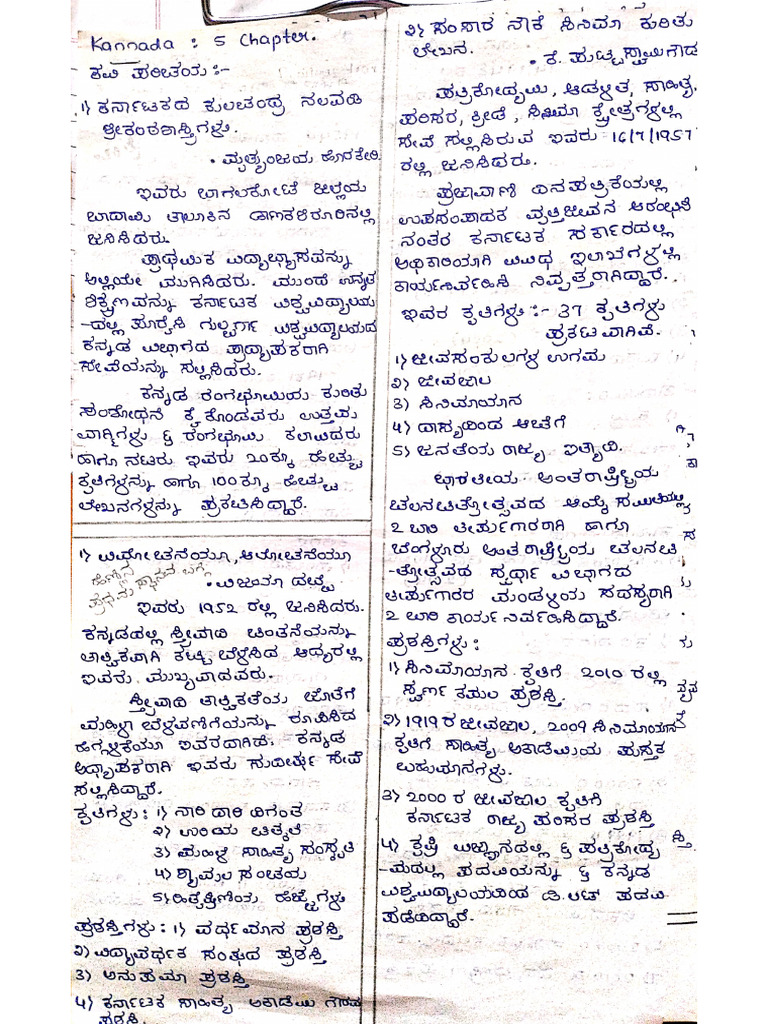 Kannada : 5 Chapter.
ಕವಿ ಪರಿಚಯ :-
1) ಕರ್ನಾಟಕದ ಕುಲಚಂದ್ರ ನಲವಡಿ
ಶ್ರೀಕಂಠಶಾಸ್ತ್ರಿಗಳು.
• ಮೃತ್ಯುಂಜಯ ಹೊರಕೇರಿ
ಇವರು ಬಾಗಲಕೋಟೆ ಜಿಲ್ಲೆಯ
ಬಾದಾಮಿ ತಾಲೂಕಿನ
ಜನಿಸಿದರು.
ಪ್ರಾಥಮಿಕ ವಿದ್ಯಾಭ್ಯಾಸವನ್ನು
ಅಲ್ಲಿಯೇ ಮುಗಿಸಿದರು. ಮುಂದೆ ಉನ್ನತ
ಶಿಕ್ಷಣವನ್ನು ಕರ್ನಾಟಕ ವಿಶ್ವವಿದ್ಯಾಲಯ
-ದಲ್ಲಿ ಪೂರೈಸಿ ಗುಲ್ಬರ್ಗಾ ವಿಶ್ವವಿದ್ಯಾಲಯದ
ಕನ್ನಡ ವಿಭಾಗದ ಪ್ರಾಧ್ಯಾಪಕರಾಗಿ
ಸೇವೆಯನ್ನು ಸಲ್ಲಿಸಿದರು.
ಕನ್ನಡ ರಂಗಭೂಮಿಯ ಕುರಿತು
ಸಂಶೋಧನೆ ಕೈಕೊಂಡವರು ಉತ್ತಮ
ವಾಗ್ಮಿಗಳು & ರಂಗಭೂಮಿ ಕಲಾವಿದರು
ಹಾಗೂ ನಟರು ಇವರು 20ಕ್ಕೂ ಹೆಚ್ಚು
ಕೃತಿಗಳನ್ನು ಹಾಗೂ 100ಕ್ಕೂ ಹೆಚ್ಚು
ಲೇಖನಗಳನ್ನು ಪ್ರಕಟಿಸಿದ್ದಾರೆ.
1) ವಿಮೋಚನೆಯೂ, ಆಲೋಚನೆಯೂ
ಹೆಣ್ಣಿನ
ಪ್ರಥಮ ಸ್ಥಾನದ ಬಗ್ಗೆ
• ವಿಜಯಾ ದಬ್ಬೆ
ಇವರು 1952 ರಲ್ಲಿ ಜನಿಸಿದರು.
ಕನ್ನಡದಲ್ಲಿ ಸ್ತ್ರೀವಾದಿ ಚಿಂತನೆಯನ್ನು
ತಾತ್ವಿಕವಾಗಿ ಕಟ್ಟಿ ಬೆಳೆಸಿದ ಆದ್ಯರಲ್ಲಿ
ಇವರು. ಮುಖ್ಯವಾದವರು.
ಸ್ತ್ರೀವಾದಿ ತಾತ್ವಿಕತೆಯ ಜೊತೆಗೆ
ಮಹಿಳಾ ಬೆಳವಣಿಗೆಯನ್ನು ರೂಪಿಸಿದ
ಹೆಗ್ಗಳಿಕೆಯೂ ಇವರದಾಗಿದೆ. ಕನ್ನಡ
ಅಧ್ಯಾಪಕರಾಗಿ ಇವರು ಸುದೀರ್ಘ ಸೇವೆ
ಸಲ್ಲಿಸಿದ್ದಾರೆ.
ಕೃತಿಗಳು : 1) ನಾರಿ ದಾರಿ ದಿಗಂತ
2) ಉರಿಯ ಚಿಗುರು
3) ಮಹಿಳೆ ಸಾಹಿತ್ಯ ಸಂಸ್ಕೃತಿ
4) ಶ್ಯಾಮಲ ಸಂಚಯ
5) ಹಿತೈಷಿಣಿಯ ಹೆಜ್ಜೆಗಳು
ಪ್ರಶಸ್ತಿಗಳು : 1) ವರ್ಧಮಾನ ಪ್ರಶಸ್ತಿ
2) ವಿದ್ಯಾವರ್ಧಕ ಸಂಘದ ಪ್ರಶಸ್ತಿ
3) ಅನುಪಮಾ ಪ್ರಶಸ್ತಿ
4) ಕರ್ನಾಟಕ ಸಾಹಿತ್ಯ ಅಕಾಡೆಮಿ ಗೌರವ
ಪ್ರಶಸ್ತಿ.
2) ಸಂಸಾರ ನೌಕೆ ಸಿನಿಮಾ ಕುರಿತು
ಲೇಖನ.
• ಕೆ. ಪುಟ್ಟಸ್ವಾಮಿಗೌಡ
ಪತ್ರಿಕೋದ್ಯಮ, ಆಡಳಿತ, ಸಾಹಿತ್ಯ,
ಪರಿಸರ, ಕ್ರೀಡೆ, ಸಿನಿಮಾ ಕ್ಷೇತ್ರಗಳಲ್ಲಿ
ಸೇವೆ ಸಲ್ಲಿಸಿರುವ ಇವರು 16/7/1957
ರಲ್ಲಿ ಜನಿಸಿದರು.
ಪ್ರಜಾವಾಣಿ ದಿನಪತ್ರಿಕೆಯಲ್ಲಿ
ಉಪಸಂಪಾದಕ ವೃತ್ತಿಜೀವನ ಆರಂಭಿಸಿ
ನಂತರ ಕರ್ನಾಟಕ ಸರ್ಕಾರದಲ್ಲಿ
ಅಧಿಕಾರಿಯಾಗಿ ವಿವಿಧ ಇಲಾಖೆಗಳಲ್ಲಿ
ಕಾರ್ಯನಿರ್ವಹಿಸಿ ನಿವೃತ್ತರಾಗಿದ್ದಾರೆ.
ಇವರ ಕೃತಿಗಳು :- 37 ಕೃತಿಗಳು
ಪ್ರಕಟವಾಗಿವೆ.
1) ಜೀವಸಂಕುಲಗಳ ಉಗಮ
2) ಜೀವಜಾಲ
3) ಸಿನಿಮಾಯಾನ
4) ದಾಸ್ಯದಿಂದ ಆಚೆಗೆ
5) ಜನತೆಯ ರಾಜ್ಯ ಇತ್ಯಾದಿ.
ಭಾರತೀಯ ಅಂತರಾಷ್ಟ್ರೀಯ
ಚಲನಚಿತ್ರೋತ್ಸವದ ಆಯ್ಕೆ ಸಮಿತಿಯಲ್ಲಿ
2 ಬಾರಿ ತೀರ್ಪುಗಾರರಾಗಿ ಹಾಗೂ
ಬೆಂಗಳೂರು ಅಂತರಾಷ್ಟ್ರೀಯ ಚಲನಚಿ
-ತ್ರೋತ್ಸವದ ಸ್ಪರ್ಧಾ ವಿಭಾಗದ
ತೀರ್ಪುಗಾರರ ಮಂಡಳಿಯ ಸದಸ್ಯರಾಗಿ
2 ಬಾರಿ ಕಾರ್ಯನಿರ್ವಹಿಸಿದ್ದಾರೆ.
ಪ್ರಶಸ್ತಿಗಳು :
1) ಸಿನಿಮಾಯಾನ ಕೃತಿಗೆ 2010 ರಲ್ಲಿ
ಸ್ವರ್ಣ ಕಮಲ ಪ್ರಶಸ್ತಿ.
2) 1919 ರ ಜೀವಜಾಲ, 2009 ಸಿನಿಮಾಯಾನ
ಕೃತಿಗೆ ಸಾಹಿತ್ಯ ಅಕಾಡೆಮಿಯ ಪುಸ್ತಕ
ಬಹುಮಾನಗಳು.
3) 2000 ರ ಜೀವಜಾಲ ಕೃತಿಗೆ
ಕರ್ನಾಟಕ ರಾಜ್ಯ ಪರಿಸರ ಪ್ರಶಸ್ತಿ
4) ಕೃಷಿ ವಿಜ್ಞಾನದಲ್ಲಿ & ಪತ್ರಿಕೋದ್ಯ
-ಮದಲ್ಲಿ ಪದವಿಯನ್ನು & ಕನ್ನಡ
ವಿಶ್ವವಿದ್ಯಾಲಯದಿಂದ ಡಿ.ಲಿಟ್ ಪದವಿ
ಪಡೆದಿದ್ದಾರೆ.